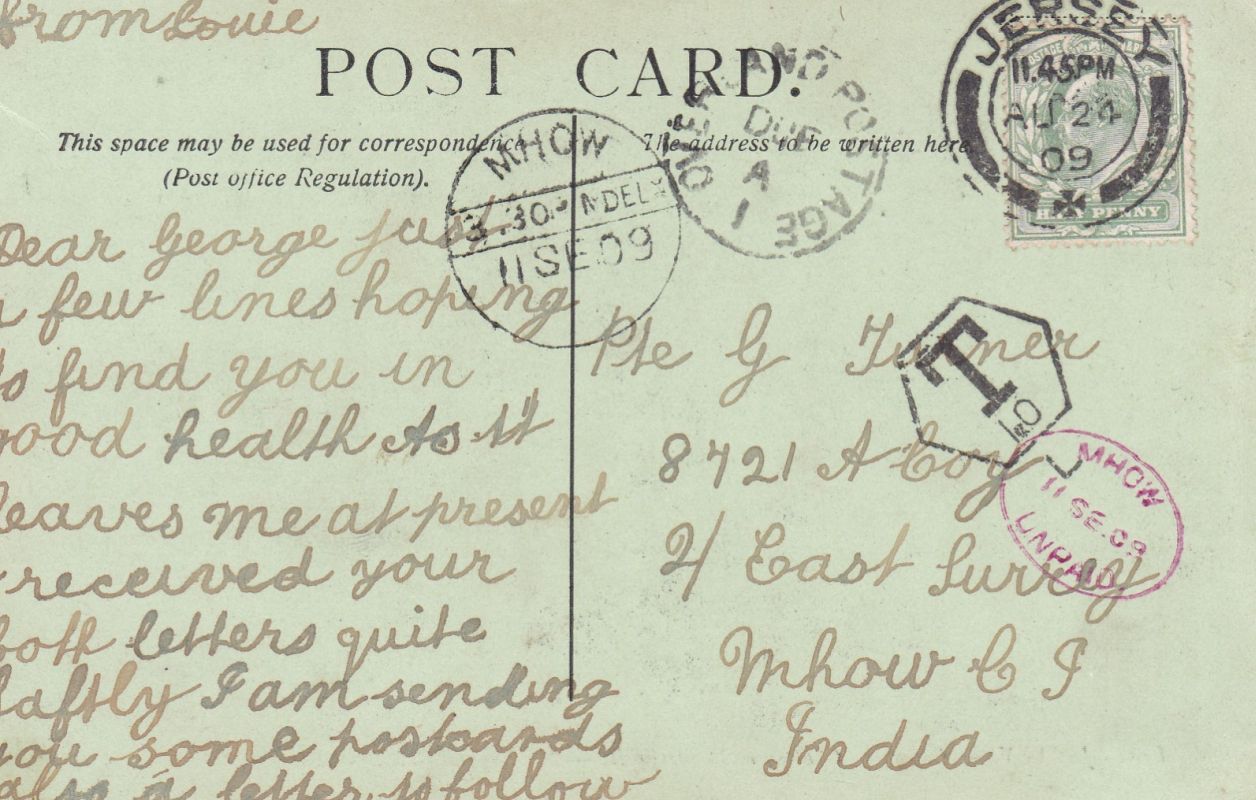 from Louie
POST CARD.
This space may be used for correspondence
(Post office Regulation).
The address to be written here.
Dear George just
a few lines hoping
to find you in
good health As it
leaves me at present
I received your
both letters quite
saftly I am sending
you some postcards
also a letter to follow
Pte G Turner
8721 A Coy
2/ East Surrey
Mhow C I
India
JERSEY
11.45PM
AU 24
09
HALF PENNY
MHOW
3.30P M DELY
11 SE 09
AND POSTAGE
DUE
A
1
T
MHOW
11 SE 09
UNPAID